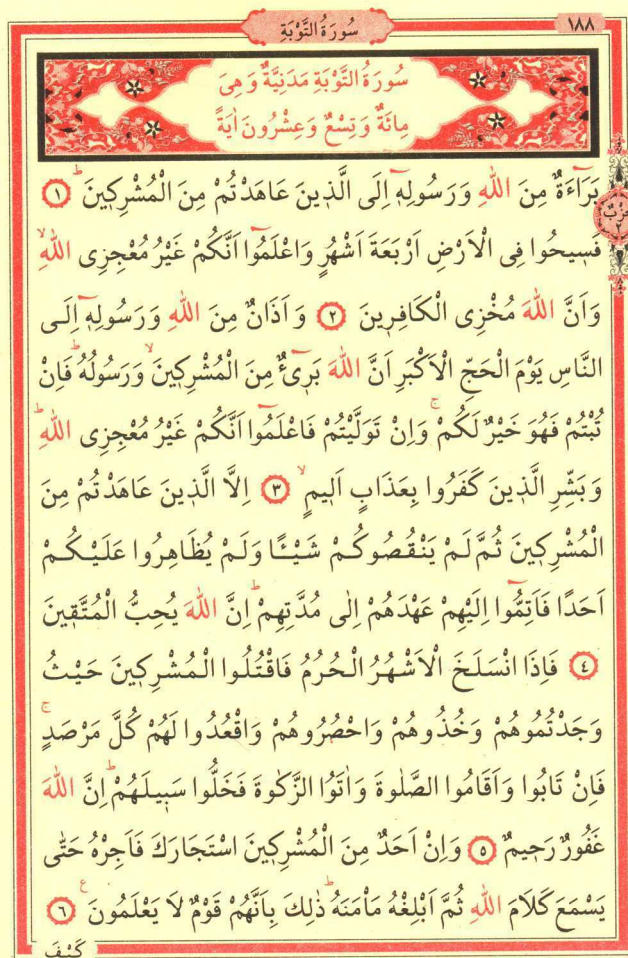 سُورَةُ التَّوْبَةِ
١٨٨
سُورَةُ التَّوْبَةِ مَدَنِيَّةٌ وَهِىَ
مِائَةٌ وَتِسْعٌ وَعِشْرُونَ اٰيَةً
بَرَٓاءَةٌ مِنَ اللّٰهِ وَرَسُولِه۪ٓ اِلَى الَّذ۪ينَ عَاهَدْتُمْ مِنَ الْمُشْرِك۪ينَۜ ١
حِزْبٌ ٢
فَس۪يحُوا فِى الْاَرْضِ اَرْبَعَةَ اَشْهُرٍ وَاعْلَمُٓوا اَنَّكُمْ غَيْرُ مُعْجِزِى اللّٰهِۙ
وَاَنَّ اللّٰهَ مُخْزِى الْكَافِر۪ينَ ٢ وَاَذَانٌ مِنَ اللّٰهِ وَرَسُولِه۪ٓ اِلَى
النَّاسِ يَوْمَ الْحَجِّ الْاَكْبَرِ اَنَّ اللّٰهَ بَر۪ىٓءٌ مِنَ الْمُشْرِك۪ينَۙ وَرَسُولُهُۜ فَاِنْ
تُبْتُمْ فَهُوَ خَيْرٌ لَكُمْۚ وَاِنْ تَوَلَّيْتُمْ فَاعْلَمُٓوا اَنَّكُمْ غَيْرُ مُعْجِزِى اللّٰهِۜ
وَبَشِّرِ الَّذ۪ينَ كَفَرُوا بِعَذَابٍ اَل۪يمٍۙ ٣ اِلَّا الَّذ۪ينَ عَاهَدْتُمْ مِنَ
الْمُشْرِك۪ينَ ثُمَّ لَمْ يَنْقُصُوكُمْ شَيْـًٔا وَلَمْ يُظَاهِرُوا عَلَيْكُمْ
اَحَدًا فَاَتِمُّٓوا اِلَيْهِمْ عَهْدَهُمْ اِلٰى مُدَّتِهِمْۜ اِنَّ اللّٰهَ يُحِبُّ الْمُتَّق۪ينَ
٤ فَاِذَا انْسَلَخَ الْاَشْهُرُ الْحُرُمُ فَاقْتُلُوا الْمُشْرِك۪ينَ حَيْثُ
وَجَدْتُمُوهُمْ وَخُذُوهُمْ وَاحْصُرُوهُمْ وَاقْعُدُوا لَهُمْ كُلَّ مَرْصَدٍۚ
فَاِنْ تَابُوا وَاَقَامُوا الصَّلٰوةَ وَاٰتَوُا الزَّكٰوةَ فَخَلُّوا سَب۪يلَهُمْۜ اِنَّ اللّٰهَ
غَفُورٌ رَح۪يمٌ ٥ وَاِنْ اَحَدٌ مِنَ الْمُشْرِك۪ينَ اسْتَجَارَكَ فَاَجِرْهُ حَتّٰى
يَسْمَعَ كَلَامَ اللّٰهِ ثُمَّ اَبْلِغْهُ مَأْمَنَهُۜ ذٰلِكَ بِاَنَّهُمْ قَوْمٌ لَا يَعْلَمُونَ ع ٦
كَيْفَ